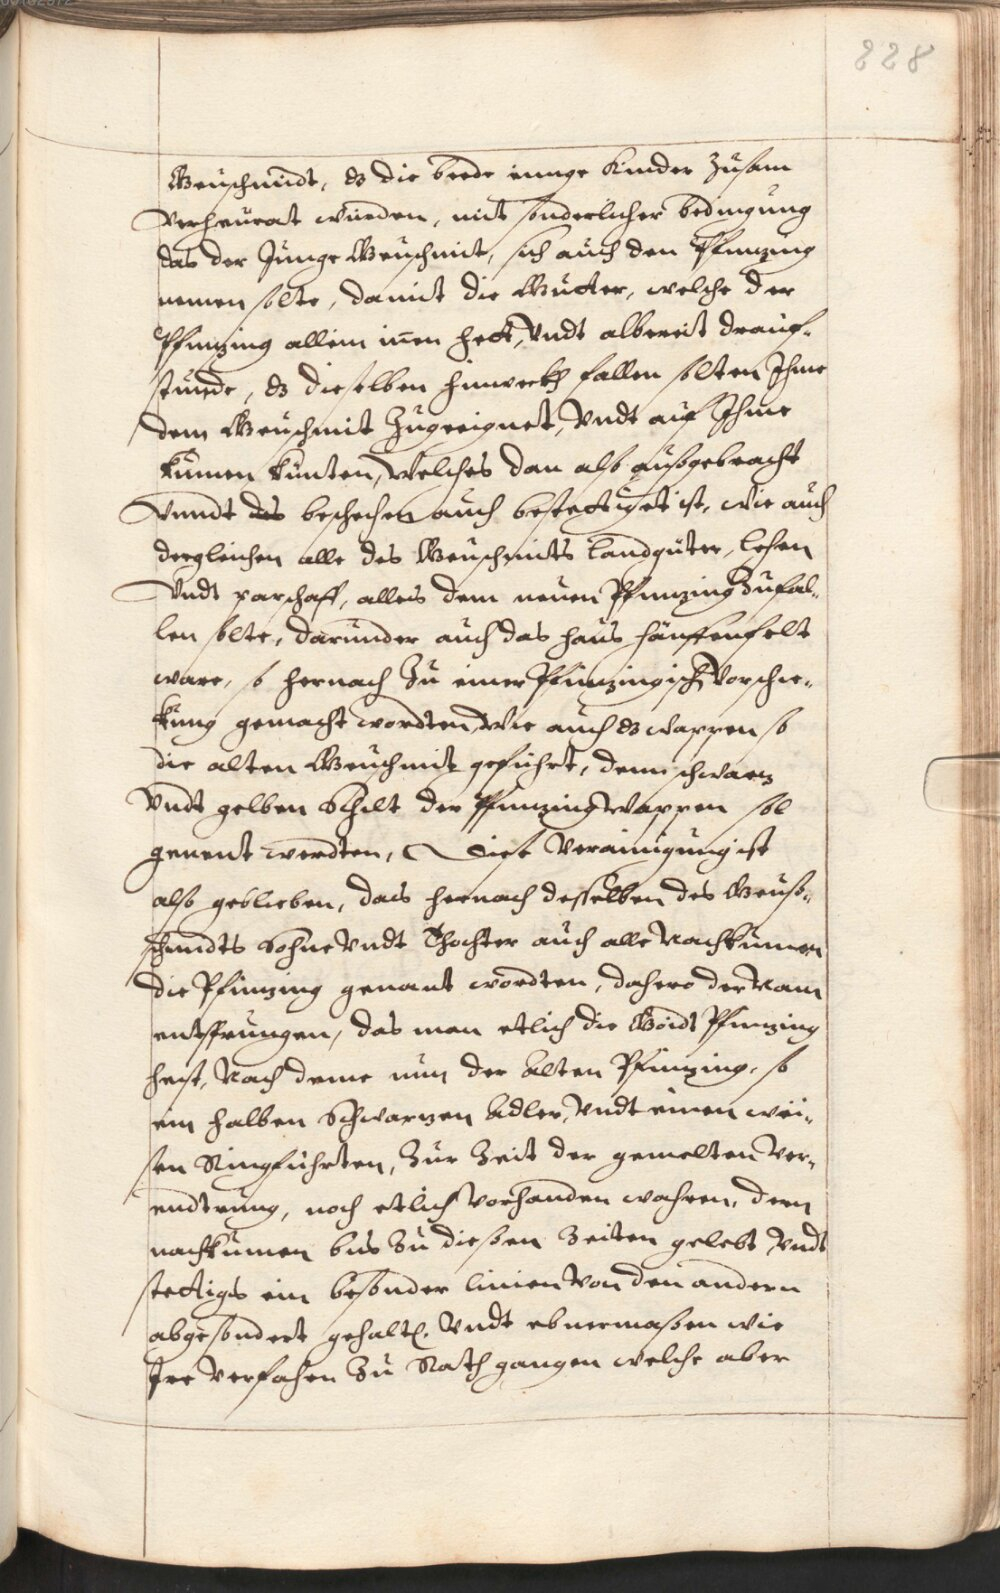 228
Geuschmidt, dz die beede iunge Kinder zusam
verheurat würden, mit sonderlicher bedingung
das der Junge Geuschmit, sich auch den Pfinzing
nennen solte, damit die Gütter, welche der
Pfinzing allein innen hett, Vndt albereit drauf„
stünde, dz dieselben hinweckh fallen solten Ihme
dem Geuschmit zugeeignet, Vndt auf Ihme
kumen künten, Welches dan also außgebracht
Vnndt des beschechen auch bestettiget ist, wie auch
dergleichen alle des Geuschmits landgüter, lehen
Vndt parschafft, alles dem neuen Pfinzing zufal„
len solte, darunder auch das haus hänffenfelt
ware, so hernach zu einer Pfinzingisch Vorschi„
kung gemacht wordten, Wie auch dz wappen so
die alten Geuschmit geführt, denn schwarz
Vndt gelben Schilt der Pfinzing Wappen sol
genent werdten, Diese Verainigung ist
also geblieben, das hernach desselben des Geuß„
schmidts Sohne Vndt Thochter auch alle Nachkumen
die Pfinzing genant wordten, dahero der Nam
entsprungen, das man etlich die Pfinzing
heist, Nach deme nun der Alten Pfinzing, so
ein halben Schwarzen Adler, Vndt einen wei„
sen Ring führten, zur Zeit der gemelten Ver„
endtrung, noch etlich Vorhanden wahren, dern
nachkumen bis zu diesen Zeiten gelebt Vndt
stettigs ein besonder linien Von den andern
abgesondert gehalten. Vndt ebnermasen wie
Ire Verfahren zu Rath gangen welche aber